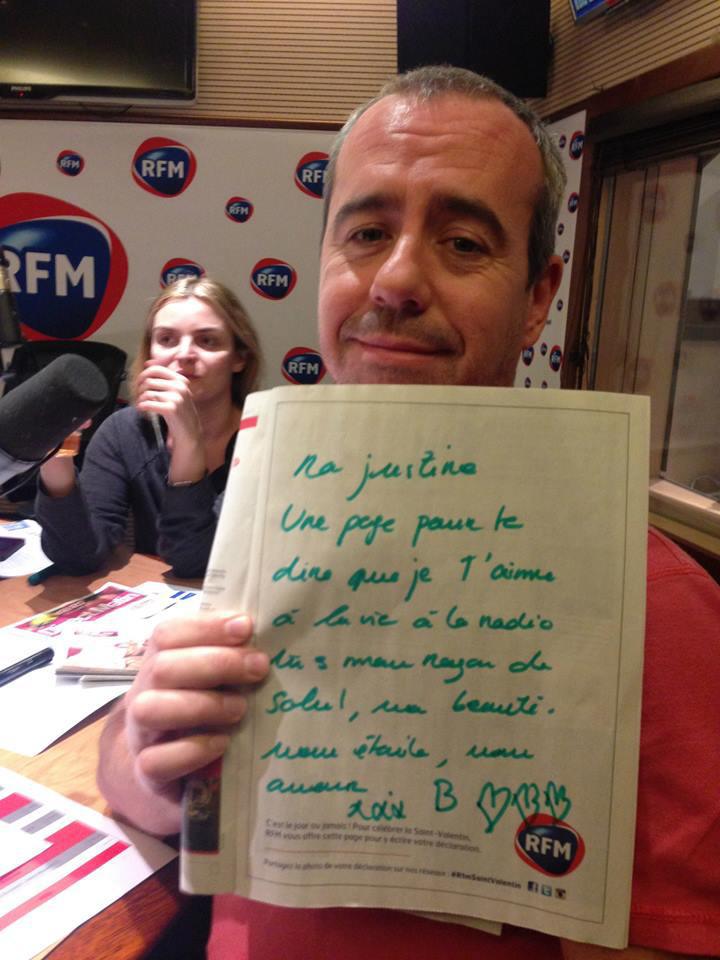 PHILIPS
RFM
RFM
RFM
RFM
RFM
RFM
RFM
RFM
Ma justine
Une page pour te
dire que je T'aime
à la vie à la radio
tu s mon rayon de
soleil, ma beauté.
mon étoile, mon
amour
B
C'est le jour ou jamais ! Pour célébrer la Saint-Valentin,
RFM vous offre cette page pour y écrire votre déclaration.
RFM
Partagez la photo de votre déclaration sur nos réseaux : #RfmSaintValentin